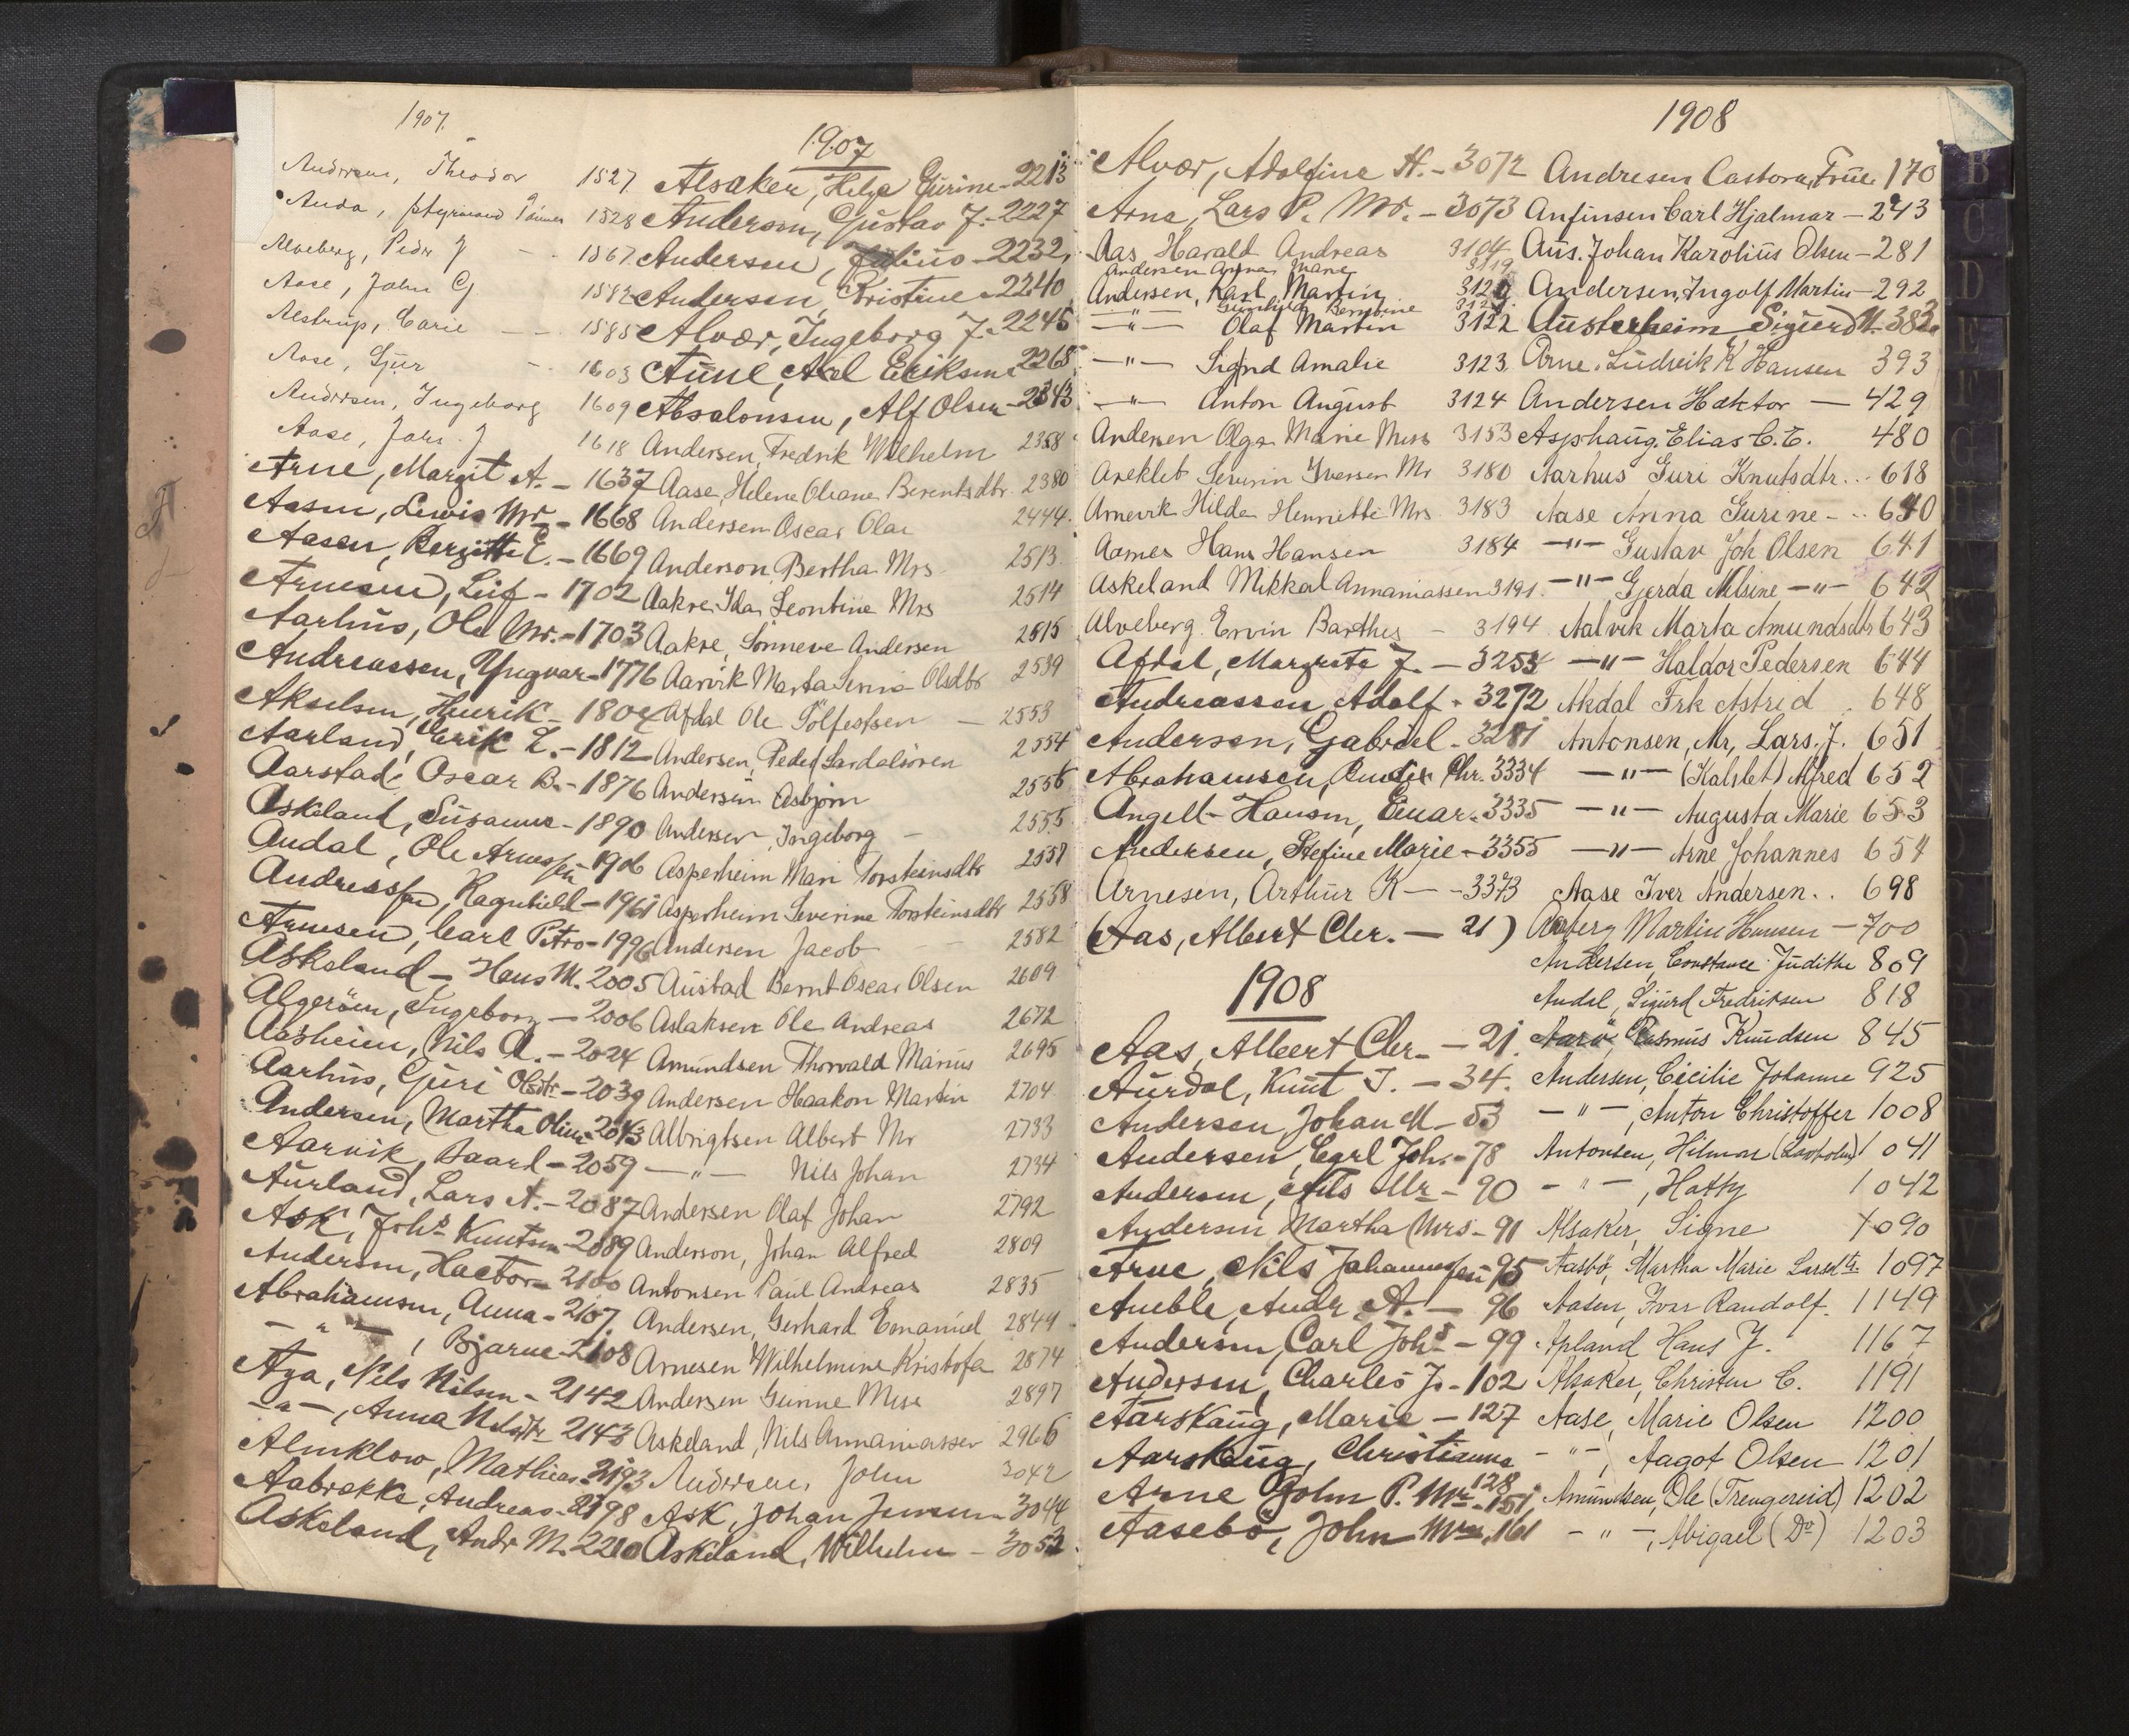 1907.
Andersen, Theodor 1527
Anda, 1528
Alveberg, Peder J - 1567
Aase, John G 1582
Alstrup, Carie - - 1585
Aase, Sjur - 1603
Andersen, Ingeborg 1609
Aase, Johs. J 1618
Arne, Margit A. - 1637
Aasen, Lewis Mr - 1668
Aasen, Bergitte E. - 1669
Arnesen, Leif - 1702
Aarhus, Ola Mr. - 1703
Andreassen, Yngvar - 1776
Akselsen, Henrik - 1802
Aarland, Erik L. - 1812
Aarstad, Oscar B. - 1876
Askeland, Susanne - 1890
Aadal, Ole Arnessen - 1906
Andreassen, Ragnhild - 1961
Arnesen, Carl Petro - 1996
Askeland - Hans M. 2005
Algeröen, Ingeborg - 2006
Aasheien, Nils A. - 2024
Aarhus, Guri Olsdtr - 2039
Andersen, Martha Oline 2043
Aarvik, Baard - 2059
Aurland, Lars A. - 2087
Ask, Johs Knutsen - 2089
Andersen, Hactor - 2100
Abrahamsen, Anna - 2107
- " - , Bjarne - 2108
Aga, Nils Nilsen - 2142
- " - , Anna Nilsdtr 2143
Almklow, Mathias - 2193
Aabrekke, Andreas - 2198
Askeland, Andr M. 2210
1907
Alsaker, Helga Gurine - 2213
Anderson, Gustav J. - 2227
Andersen, Julius - 2232
Andersen, Kristine - 2240
Alvær, Ingeborg J. - 2245
Aune, Axel Eriksen 2268
Absalonsen, Alf Olsen - 2343
Andersen, Fredrik Wilhelm 2358
Aase, Helene Oleane Berentsdtr. 2380
Andersen Oscar Olai 2444
Anderson, Bertha Mrs 2513
Aakre, Ida Leontine Mrs 2514
Aakre, Sönneve Andersen 2515
Aarvik Marta Olsdtr 2539
Afdal Ole Tölfestsen - 2553
Andersen, Peder 2554
Andersen Asbjørn 2556
Andersen, Ingeborg - 2555
Asperheim Mari Torsteinsdtr 2557
Asperheim Severine Torsteinsdtr 2558
Andersen Jacob - - 2582
Austad Bernt Oscar Olsen 2609
Aslaksen Ole Andreas 2672
Amundsen Thorvald Marius 2695
Andersen Haakon Martin 2704
Albrigtsen Albert Mr 2733
- " - Nils Johan 2734
Andersen Olaf Johan 2792
Anderson, Johan Alfred 2809
Antonsen Paul Andreas 2835
Andersen, Gerhard Emanuel 2844
Arnesen Wilhelmine Kristofa 2874
Andersen Gunne Miss 2897
Askeland, Nils Annaniassen 2966
Andersen, John 3042
Ask, Johan Jensen - 3044
Askeland, Wilhelm - 3052
Alvær, Adolfine H. - 3072
Arne, Lars P. Mr. - 3073
Aas Harald Andreas 3104
Andersen Anna Marie 3119
Andersen, Karl Martin 3120
Gunhild Berntine 3121
- " - Olaf Martin 3122
- " - Signd Amalie 3123
- " - Anton August 3124
Andersen Olga Marie Miss 3153
Areklet Severin Iversen Mr 3180
Arnevik Hilda Henriette Mrs 3183
Aarnes Hans Hansen 3184
Askeland Mikkal Annaniassen 3191
Alveberg Ervin Barthes - 3194
Afdal, Margreta J. - 3254
Andreassen, Adolf - 3272
Andersen, Gabriel - 3281
Abrahamsen, Chr. 3334
Angell-Hansen, Einar - 3335
Andersen, Stefine Marie - 3355
Arnesen, Arthur K - - 3373
(Aas, Albert Chr. - 21)
1908
Aas, Albert Chr. - 21
Aurdal, Knut I. - 34
Andersen Johan M - 53
Andersen, Carl Joh. - 78
Andersen, Nils Mr - 90
Andersen Martha Mrs - 91
Arne, Nils Johannessen 95
Aneble, Andr. A. - 96
Andersen, Carl Johs - 99
Andersen, Charles J. - 102
Aarskaug, Marie - 127
Aarskaug, Christianna 128
Arne John P. Mr - 151
Aasebö, John Mr 161
1908
Andresen Castora, Frue 170
Anfinsen Carl Hjalmar - 243
Aus. Johan Karolius Olsen - 281
Andersen, Ingolf Martin - 292
Austerheim Sigurd N. 383
Arne. Ludvik K Hansen 393
Andersen Haktor - 429
Asphaug. Elias C. E. 480
Aarhus Guri Knutsdtr... 618
Aase Anna Gurine - .. 640
- " - Gustav Joh Olsen 641
- " - Gjerda Nilsine - " - 642
Aalvik Marta Amundsdtr 643
- " - Haldor Pedersen 644
Akdal Frk Astrid 648
Antonsen, Mr, Lars. J. 651
- " - (Kalslet) Alfred 652
- " - Augusta Marie 653
- " - Arne Johannes 654
Aase Iver Andersen.. 698
Aaberg Martin Hansen - 700
Andersen, Constance Judithe 809
Andal, Sigurd Fredriksen 818
Aarö, Rasmus Knudsen 845
Andersen, Cecilie Johanne 925
- " - , Anton Christoffer 1008
Antonsen, Hilmar 1041
- " - , Hatty 1042
Alsaker, Signe 1090
Aasbö, Martha Marie Larsdtr. 1097
Aasen, Ivar Randolf. 1149
Apland Hans J. 1167
Alsaker, Christen C. 1191
Aase, Marie Olsen 1200
- " - , Aagot Olsen 1201
Amundsen, Ole (Trengereid) 1202
- " - , Abigael (Do) 1203
B
C
D
E
F
G
H